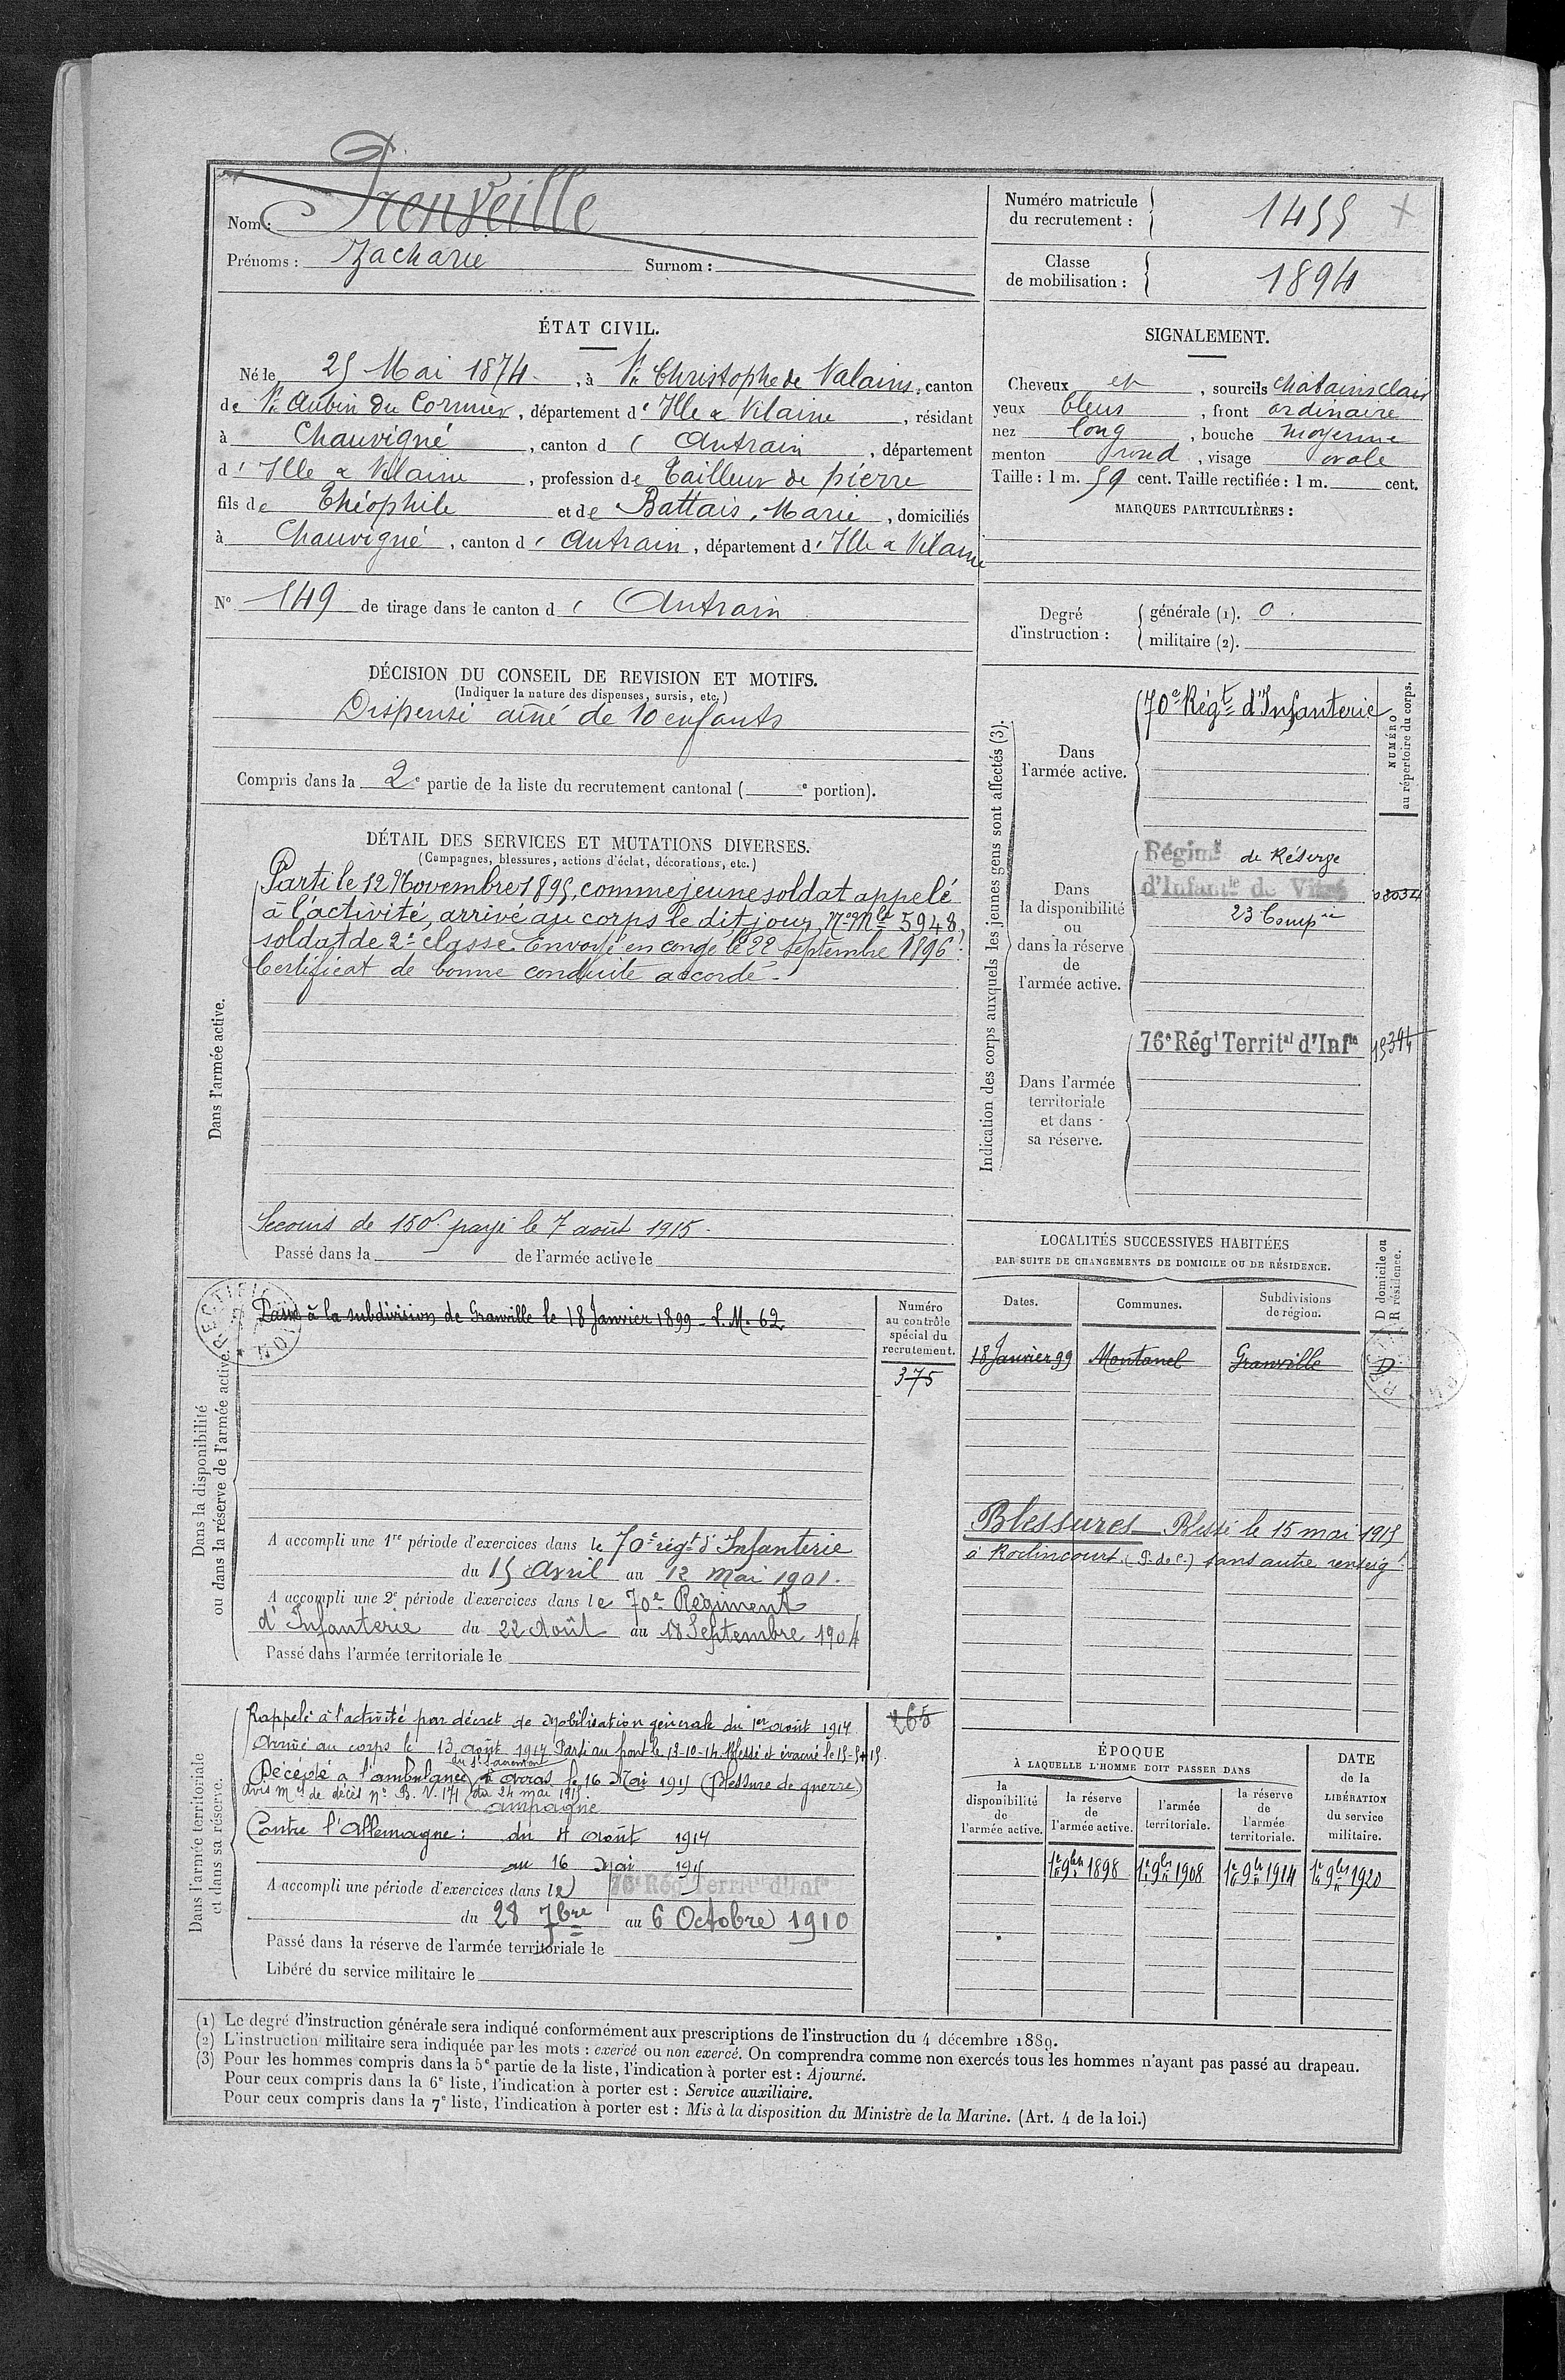 Nom : Prenveille
Prénoms : Zacharie Surnom :
Numéro matricule du recrutement : 1455
Classe de mobilisation : 1894
ÉTAT CIVIL.
Né le 25 Mai 1874, à St Christophe de Valains, canton
de St Aubin du Cormier, département d'Ille & Vilaine, résidant
à Chauvigné, canton d' Antrain, département
d'Ille & Vilaine, profession de Tailleur de pierre
fils de Théophile et de Battais, Marie, domiciliés
à Chauvigné, canton d' Antrain, département d'Ille & Vilaine
N° 149 de tirage dans le canton d' Antrain
SIGNALEMENT.
Cheveux et, sourcils chatains clair
yeux bleus, front ordinaire
nez long, bouche moyenne
menton rond, visage ovale
Taille : 1 m. 59 cent. Taille rectifiée : 1 m. cent.
MARQUES PARTICULIÈRES :
Degré d'instruction : générale (1). 0.
militaire (2).
DÉCISION DU CONSEIL DE REVISION ET MOTIFS.
(Indiquer la nature des dispenses, sursis, etc.)
Dispensé ainé de 10 enfants
Compris dans la 2e partie de la liste du recrutement cantonal ( e portion).
DÉTAIL DES SERVICES ET MUTATIONS DIVERSES.
(Campagnes, blessures, actions d'éclat, décorations, etc.)
Dans l'armée active.
Parti le 12 Novembre 1895, comme jeune soldat appelé
à l'activité, arrivé au corps le dit jour, N° Mle 5948,
soldat de 2e classe. Envoyé en congé le 22 septembre 1896.
Certificat de bonne conduite accordé.
Secours de 150f payé le 7 août 1915.
Passé dans la de l'armée active le
Indication des corps auxquels les jeunes gens sont affectés (3).
NUMÉRO au répertoire du corps.
Dans l'armée active.
70e Régt d'Infanterie
Dans la disponibilité ou dans la réserve de l'armée active.
Régimt de Réserve
d'Infantie de Vitré
23 Compie
08034
Dans l'armée territoriale et dans sa réserve.
76e Régt Territal d'Infie
15394
LOCALITÉS SUCCESSIVES HABITÉES
PAR SUITE DE CHANGEMENTS DE DOMICILE OU DE RÉSIDENCE.
Dates. Communes. Subdivisions de région. D domicile ou R résidence.
18 Janvier 99 Montanel Granville D
Blessures Blessé le 15 mai 1915
à Roclincourt (P. de C.) sans autre renseigt
Dans la disponibilité ou dans la réserve de l'armée active.
Passé à la subdivision de Granville le 18 Janvier 1899 - L.M. 62
Numéro au contrôle spécial du recrutement.
375
A accompli une 1re période d'exercices dans le 70e régt d'Infanterie
du 15 Avril au 12 Mai 1901.
A accompli une 2e période d'exercices dans le 70e Régiment
d'Infanterie du 22 Août au 18 Septembre 1904
Passé dans l'armée territoriale le
Dans l'armée territoriale et dans sa réserve.
Rappelé à l'activité par décret de mobilisation générale du 1er août 1914
Arrivé au corps le 13 août 1914 Parti au front le 13-10-14. Blessé et évacué le 15-5-15.
du St Sacrement
Décédé à l'ambulance à Arras le 16 Mai 1915 (blessure de guerre)
avis Mel de décès n° B.V. 171 du 24 mai 1915.
Campagne
Contre l'Allemagne : du 4 août 1914
au 16 Mai 1915
265
A accompli une période d'exercices dans le 76e Régt Territal d'Infie
du 28 7bre au 6 Octobre 1910
Passé dans la réserve de l'armée territoriale le
Libéré du service militaire le
ÉPOQUE
À LAQUELLE L'HOMME DOIT PASSER DANS
la disponibilité de l'armée active. la réserve de l'armée active. l'armée territoriale. la réserve de l'armée territoriale.
DATE de la LIBÉRATION du service militaire.
1er 9bre 1898 1er 9bre 1908 1er 9bre 1914 1er 9bre 1920
(1) Le degré d'instruction générale sera indiqué conformément aux prescriptions de l'instruction du 4 décembre 1889.
(2) L'instruction militaire sera indiquée par les mots : exercé ou non exercé. On comprendra comme non exercés tous les hommes n'ayant pas passé au drapeau.
(3) Pour les hommes compris dans la 5e partie de la liste, l'indication à porter est : Ajourné.
Pour ceux compris dans la 6e liste, l'indication à porter est : Service auxiliaire.
Pour ceux compris dans la 7e liste, l'indication à porter est : Mis à la disposition du Ministre de la Marine. (Art. 4 de la loi.)